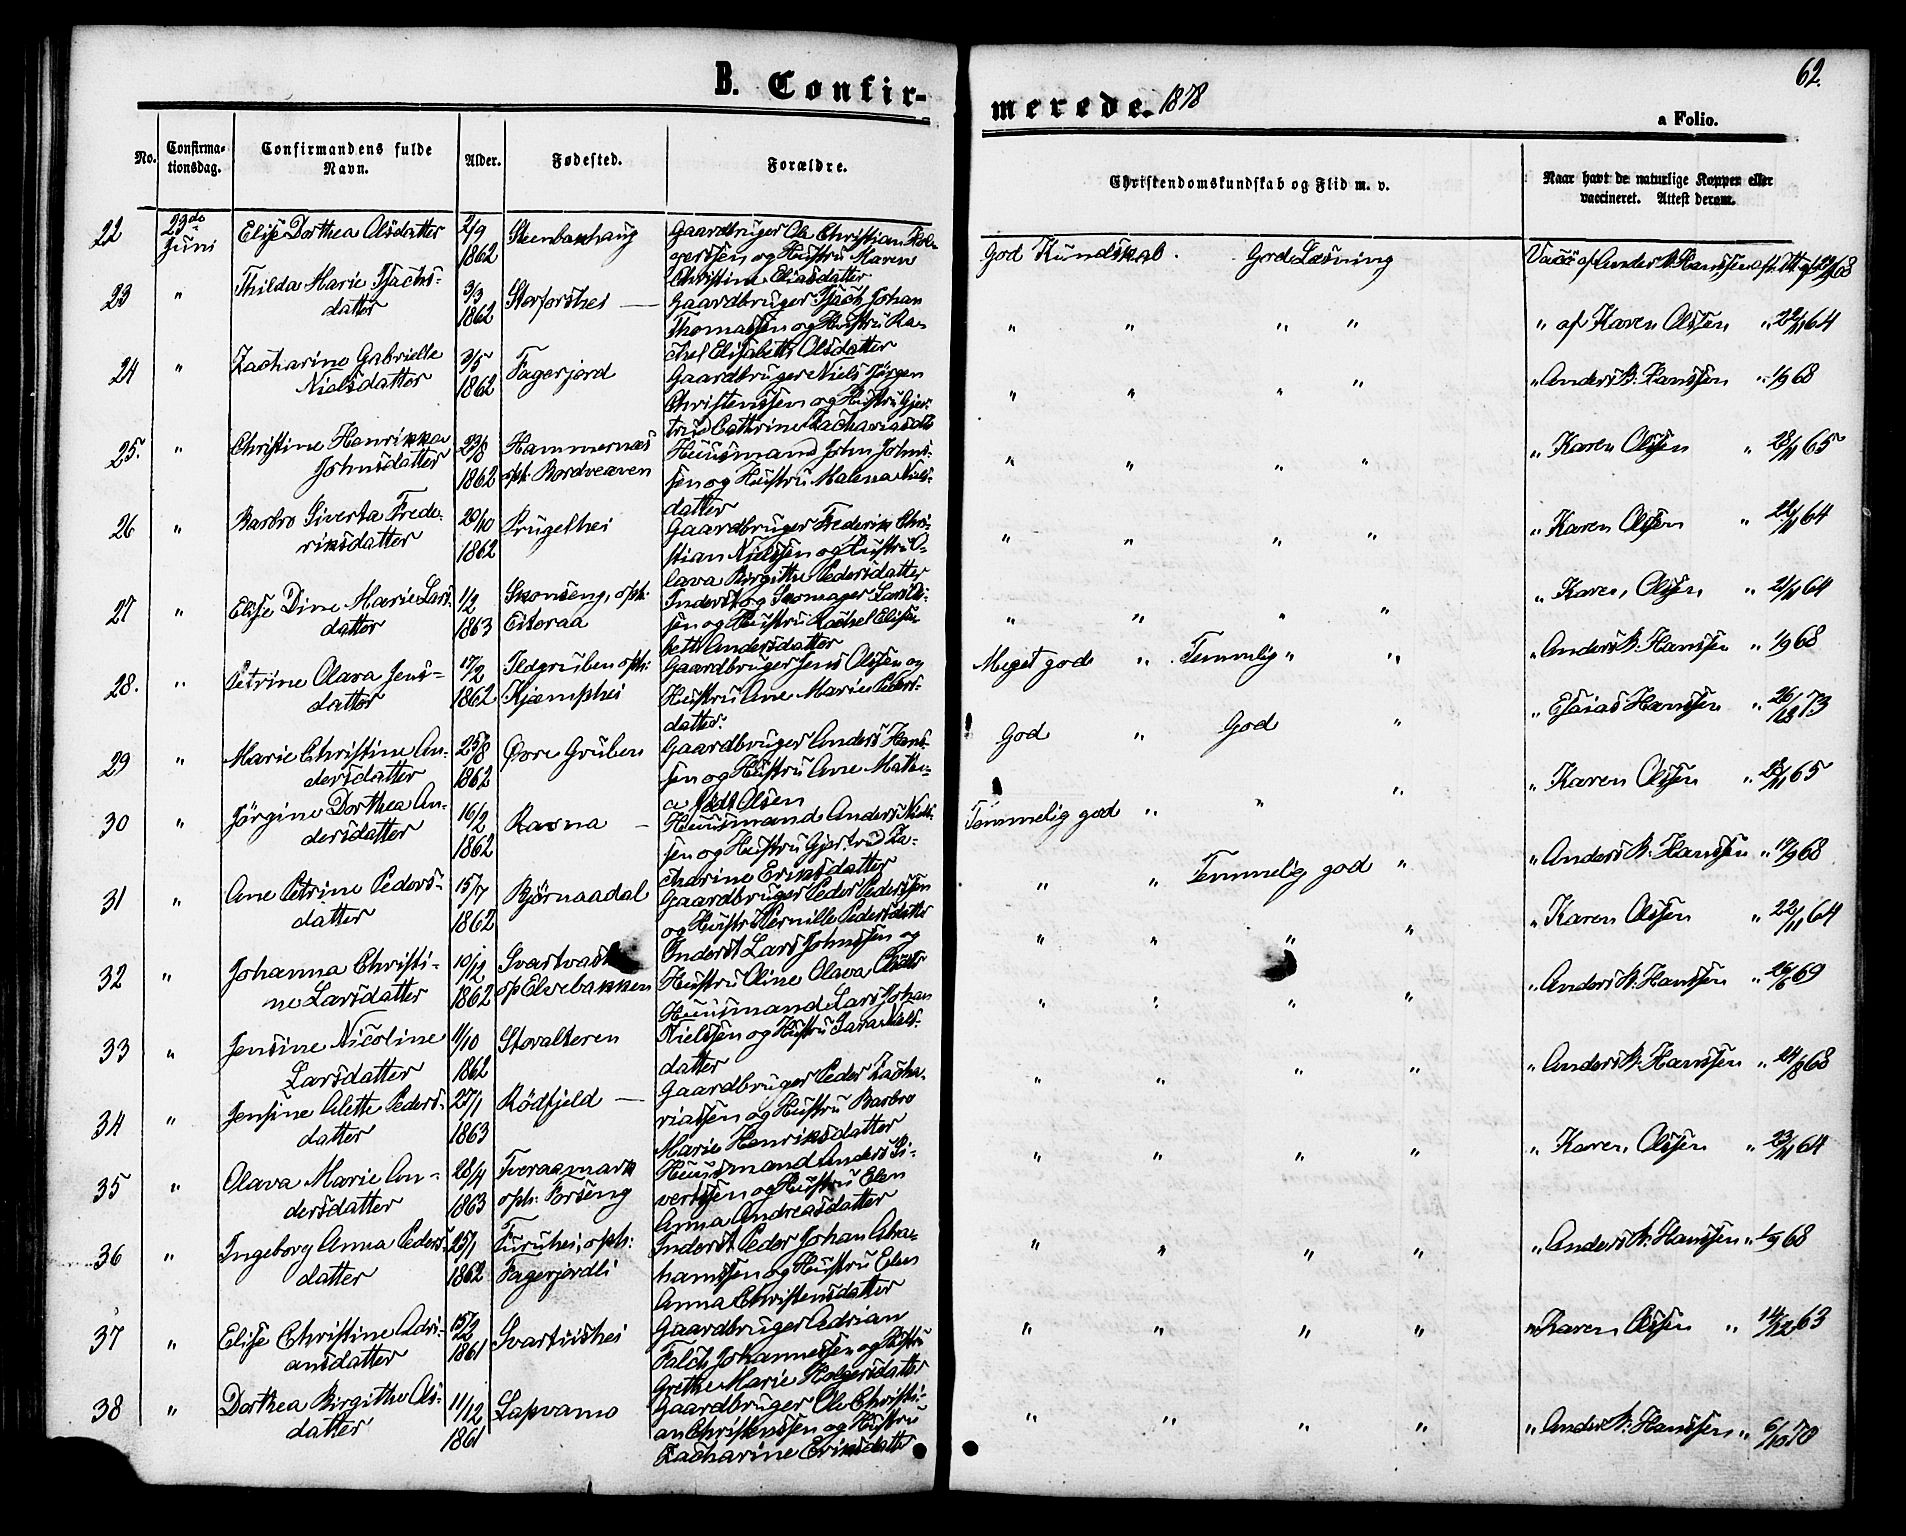 B. Confir-
merede. 1878
62.
a Folio.
No. Confirma-tionsdag. Confirmandens fulde Navn. Alder. Fødested. Forældre. Christendomskundskab og Flid m. v. Naar havt de naturlige Kopper eller vaccineret. Attest derom.
22 23de Juni Elise Dorthea Olsdatter 2/9 1862 Steenbakhaug Gaardbruger Ole Christian Hol-
gerssen og Hustru Karen
Christine Eliasdatter
God Kundskab. God Læsning Vacc af Anders B. Hanssen
23 " Thilda Marie Isachs-
datter 3/3 1862 Storforshei Gaardbruger Isach Johan
Thomassen og Hustru Ra-
chel Elisabeth Olsdatter
" " " " " af Karen Olssen " 22/11 64
24 " Zacharine Gabrielle
Nielsdatter 3/5 1862 Fagerjord Gaardbruger Niels Jørgen
Christenssen og Hustru Gjer-
trud Cathrine Zachariasdtr
" " " " " Anders B. Hanssen " 1/9 68
25. " Christine Henrikka
Johnsdatter 23/8 1862 Hammernæs
oph: Bordveaven Huusmand John Johns-
sen og Hustru Malena Niels-
datter
" " " " " Karen Olssen " 28/11 65
26 " Barbro Siverta Frede-
riksdatter 29/10 1862 Prugelhei Gaardbruger Frederik Chri-
stian Nielssen og Hustru O-
lava Birgitte Pedersdatter
" " " " " Karen Olssen " 22/11 64
27 " Elise Dine Marie Lars-
datter 1/2 1863 Skonseng, oph:
Eiteraa Inderst og Skomager Lars Ol-
sen og Hustru Rachel Elisa-
beth Andersdatter
" " " " " Karen Olssen " 21/11 64
28. " Petrine Olava Jens-
datter 17/2 1862 Ildgruben oph:
Kjæmphei Gaardbruger Jens Olssen og
Hustru Ane Marie Peders-
datter.
Meget gode " Temmelig " " " Anders B. Hanssen " 1/9 68
29 " Marie Christine An-
dersdatter 25/8 1862 Øvre Gruben Gaardbruger Anders Hans-
sen og Hustru Ane Mathe-
a født Olsen
God " God " " Esaias Hanssen " 26/10 73
30 " Jørgine Dorthea An-
dersdatter 16/2 1862 Ravna Huusmand Anders Niels-
sen og Hustru Gjertrud Za-
charine Eriksdatter
Temmelig god " " " " Karen Olssen " 28/11 65
31 " Ane Petrine Peders-
datter 15/7 1862 Bjørnaadal Gaardbruger Peder Pederssen
og Hustru Pernille Pedersdatter
" " Temmelig god " " Anders B. Hanssen " 17/9 68
32 " Johanna Christi-
ne Larsdatter 10/12 1862
op Elvebakken Inderst Lars Johnssen og
Hustru Oline Olava
" " " " " Karen Olssen " 22/11 64
33 " Jensine Nicoline
Larsdatter 11/10 1862 Storalteren Huusmand Lars Johan
Nielssen og Hustru Sara Niels-
datter
" " " " " Anders B. Hanssen " 26/6 69
34 " Jensine Alette Peders-
datter 27/1 1863 Rödfjeld Gaardbruger Peder Zacha-
riassen og Hustru Barbro
Marie Henriksdatter
" " " " " Anders B. Hanssen " 24/8 68
35 " Olava Marie An-
dersdatter 28/4 1863 Tveraamark
oph: Brseng Huusmand Anders Si-
vertssen og Hustru Elen
Anna Andreasdatter
" " " " " Karen Olssen " 23/11 64
36 " Ingeborg Anna Peders-
datter 25/1 1862 Furuhei, oph:
Fagerjordli Inderst Peder Johan Abra-
hamssen og Hustru Elen
Anna Christensdatter
" " " " " Anders B. Hanssen " 1/9 68
37 " Elise Christine Adri-
ansdatter 1861 Svartvishei Gaardbruger Adrian
Falch Johannessen og Hustru
Grethe Marie Holgersdatter
" " " " " Karen Olssen " 14/12 63
38 " Dorthea Birgitthe Ols-
datter 11/12 1861 Lapvamo Gaardbruger Ole Christi-
an Christenssen og Hustru
Zacharine Eriksdatter
" " " " " Anders B. Hanssen " 6/10 70